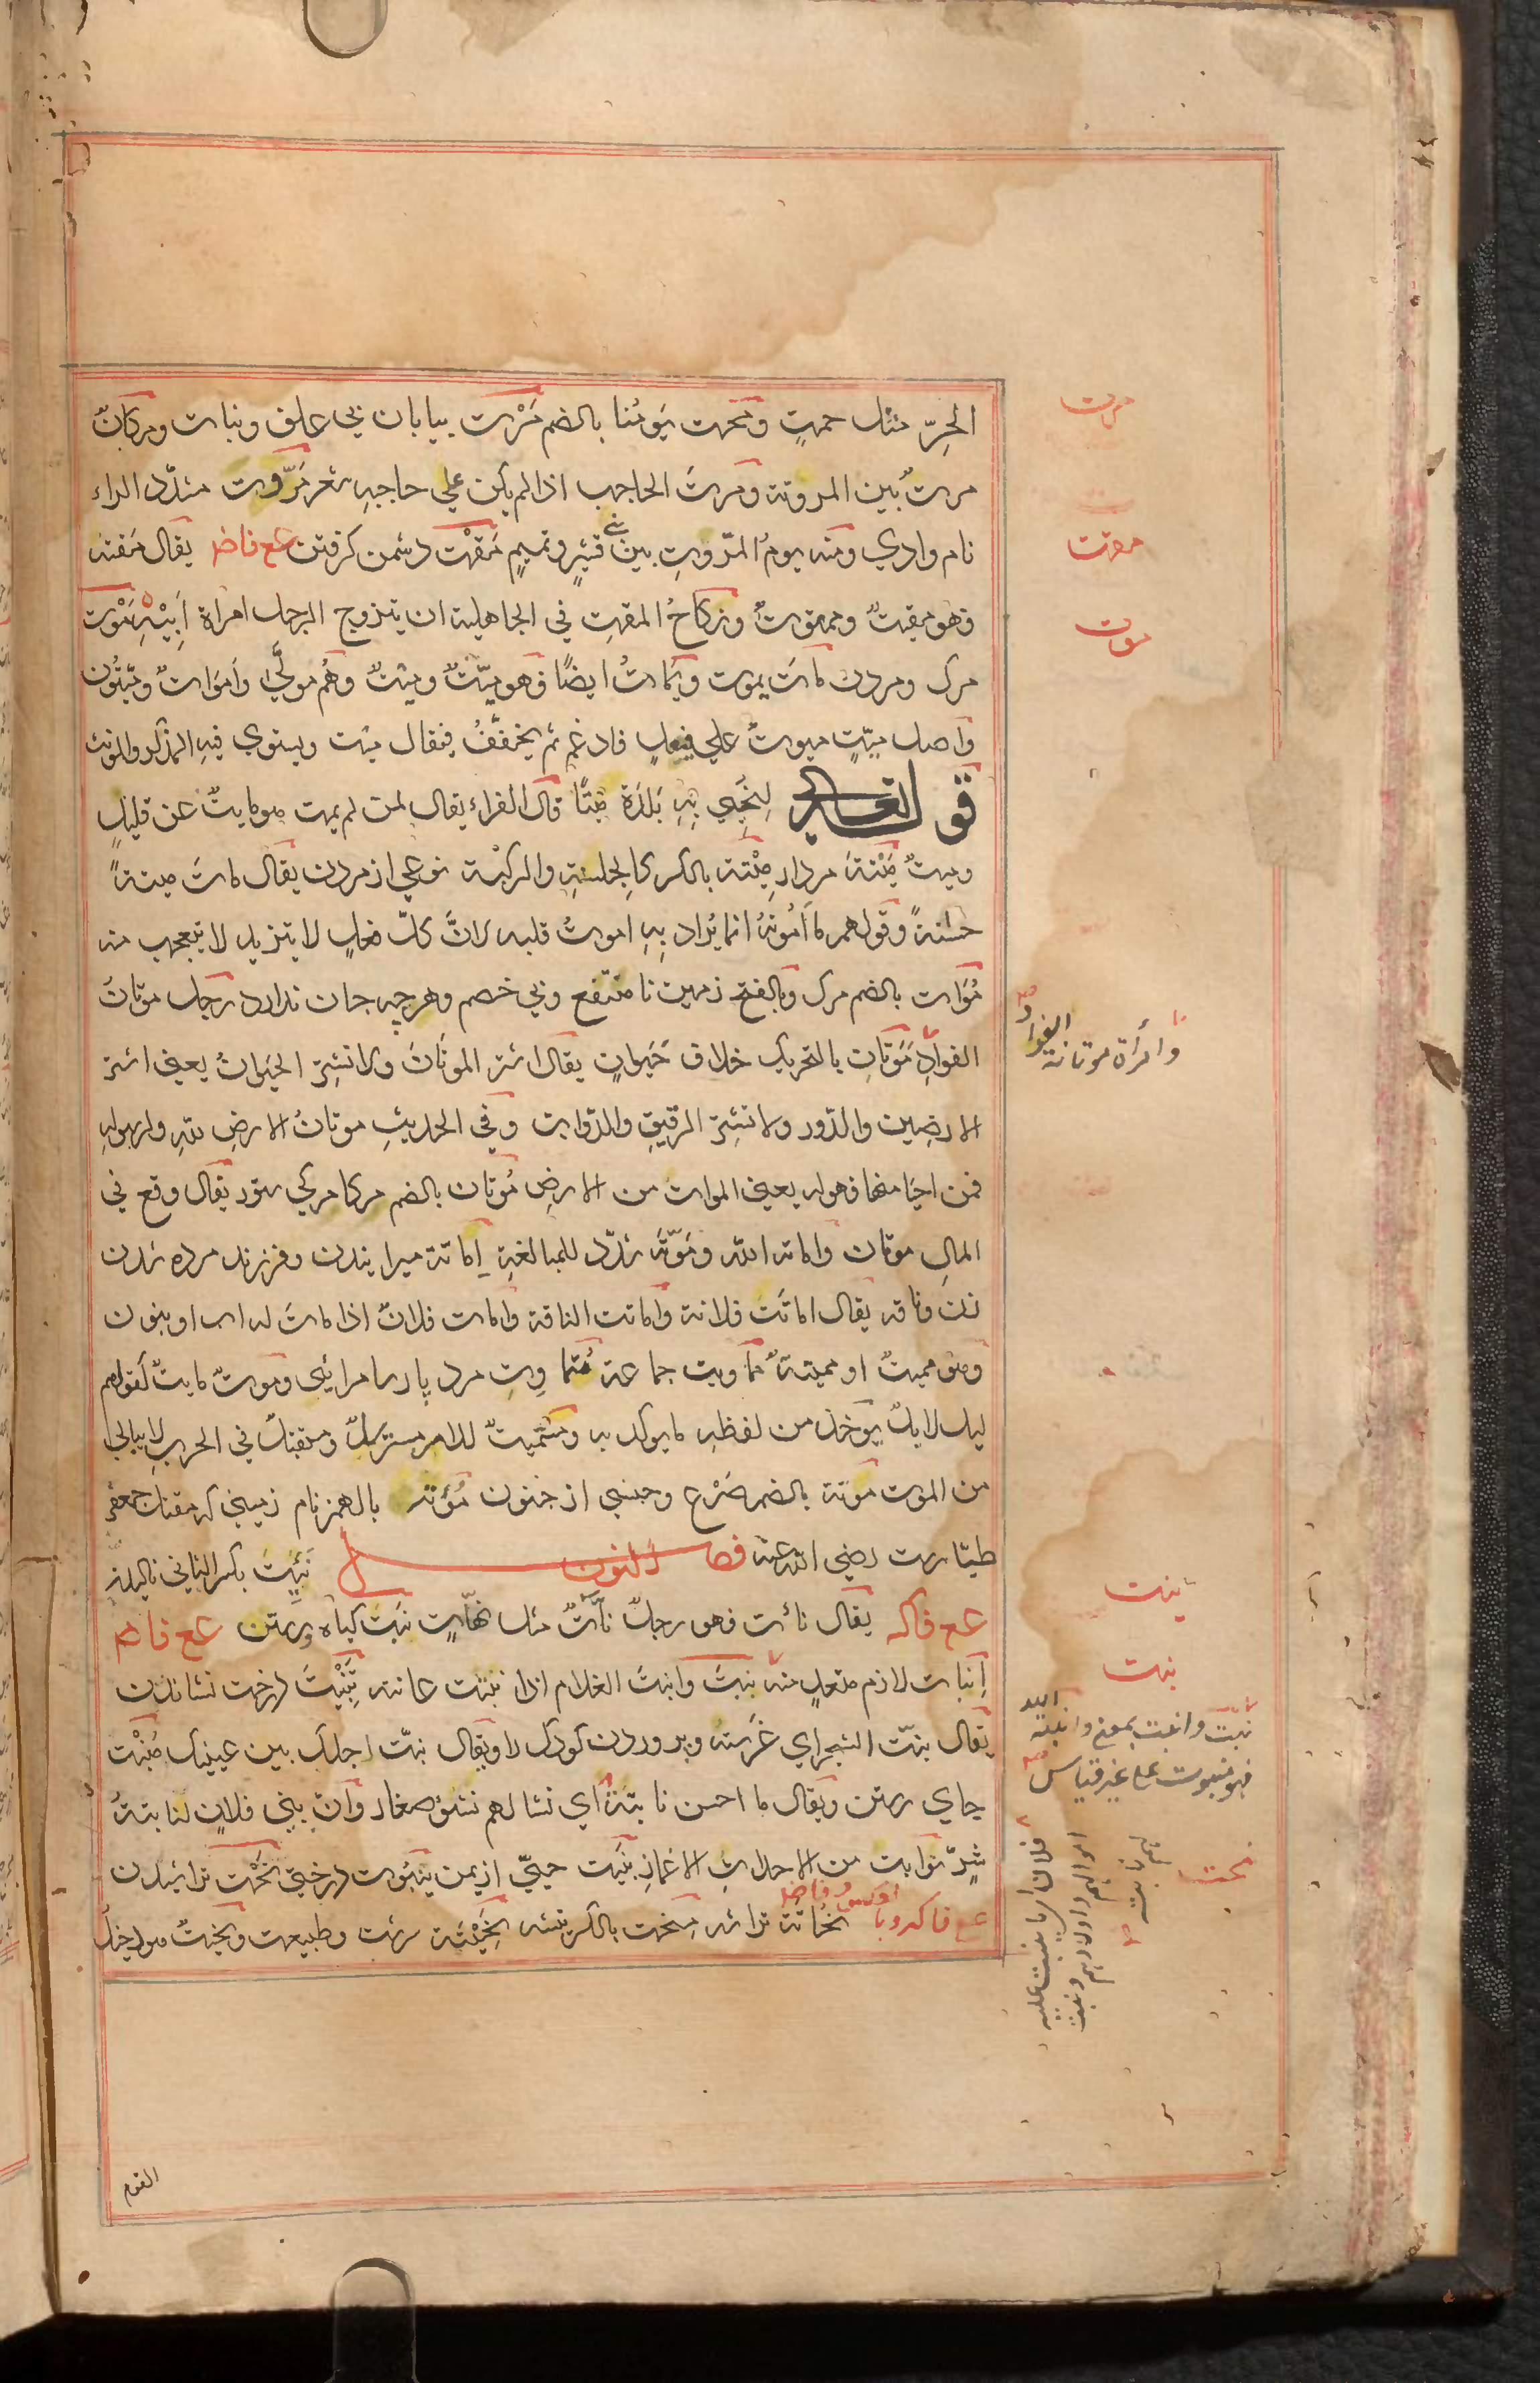 الحِرّ مثل حمتٍ ومَحمت يَومُنا بالضم مَرْت بيابان بي علف ونبات ومكانٌ
مرتٌ بين المروتة ومَرتَ الحاجب اذا لم يكن علي حاجبه شعر مَرّوت مشدّد الراء
نام وادي ومنه يومُ المرّوتِ بين بني قشيرٍ وتميمٍ مَقْت دشمن كرفتن عع فاض يقال مَقته
فهو مقيتٌ وممقوتٌ ونكاحُ المقتِ في الجاهلية ان يتزوج الرجل امراة اَبيْهِ مَوْت
مرك ومردن ماتَ يموت ويَماتُ ايضًا فهو ميّتٌ وميْتٌ وهُم موتَي واَمَواتٌ وميّتُون
واصل ميّتٍ ميوتٌ علي فيعلٍ فادغم ثم يخفّفُ فيقال ميْت ويستوي فيه المذكر والمونث
قوله تعالى لِنُحْيِيَ بِهِ بَلدَة ميْتًا قال الفراء يقال لمن لم يمت هو مايتٌ عن قليلٍ
وميتٌ مَيْتة مردار مِيْتة بالكسر كالجلسةِ والركبة نوعي از مردن يقال ماتَ ميتةً
حسنةً وقولهم ما اَمْوتهُ انما يُراد بِهِ اموتُ قلبه لانَّ كلّ فعلٍ لا يتزيد لا يتعجب منه
مُوَات بالضم مرك وبالفتح زمين نا منتفع وبي خصم وهرچه جان ندارد رجل موتانُ
الفوادِ مَوَتان بالتحريك خلاف حَيَوانٍ يقال اشتر الموتَانَ ولا تشترِ الحيَوانُ يعني اشتر
الارضين والدّور ولا تشتر الرقيق والدّواب وفي الحديث موتانُ الارضِ للّٰهِ ولرسولهِ
فمن احيا منها فهو له يعني الموات من الارض مُوتان بالضم مركا مركي ستور يقال وقع في
المالِ موتان واماته اللّٰه ومَوّته شدّد للمبالغةِ اِماتة ميرانيدن وفرزند مرده شدن
زن وناقه يقال اماتَت فلانة واَماتت الناقة واَمات فلانٌ اذا ماتَ له ابن او بنون
وهو مميتٌ او مميتةٌ مَماويت جماعة مُتماوِت مرد پارسا مرائي وموتٌ مايتٌ كقولهم
ليل لايلٌ يوخذ من لفظهِ ما يوكد به ومستميتٌ للامر مسترسلٌ ومستقتلٌ في الحرب لا يبالي
من الموت مُوتة بالضم صَرْع وجنسي از جنون مُؤتة بالهمز نام زميني كه مقتل جعفر
طيّار است رضي اللّٰه عنه فصل النون نَئِيْت بكسر الثاني ناليدن
عع فاكه يقال نأت فهو رجلٌ نآتٌ مثل نهّاتٍ نبَت كياه ورستن عع فاضم
اِنبات لازم متعدٍ منه نبتَ وانبتَ الغلام اذا نبتت عانته تَنْبِيْتَ درخت نشاندن
يقال نبّت الشجر اي غرسَتهُ وپروردن كودك را ويقال نبّت اجلك بين عينيك مَنْبِت
جاي رستن ويقال ما احسن نابتةً اي نشا لهم نشؤ صغار وانّ بني فلانٍ لنابتةُ
شرٍّ نوابت من الاحداث الاغمار نَبِيْت حيّ از يمن يَنبُوت درختي نَحْت تراشيدن
عع فا كسروبا نُحَاتَة تراشه مِنْحَت بالكسر تيشه نَحِيْتَة سرشت وطبيعت ونحيتٌ
مرت
مقت
موت
وامرأة موتانة الفواد
نبت
نبت
نبّت وانبت بمعنى وانبته الله
فهو منبوت على غير قياس
نحت
القوم